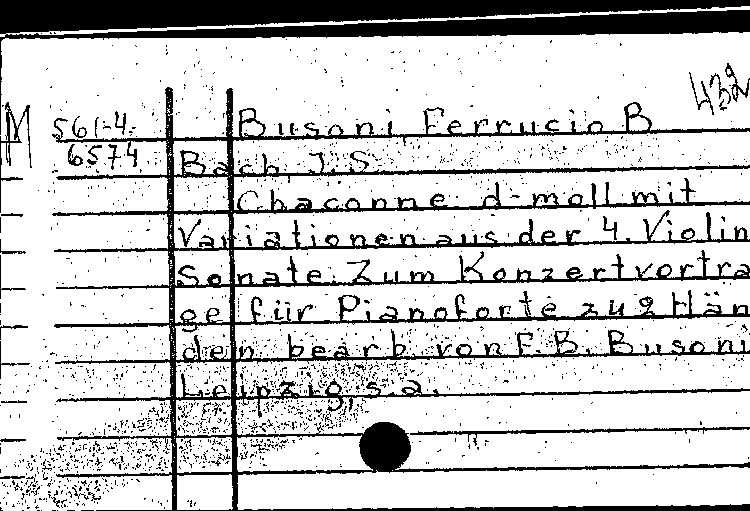 432
M 561-4. Busoni, Ferrucio B
6574 Bach, J. S.
Chaconne d-moll mit
Variationen aus der 4. Violin
Sonate. Zum Konzertvortra
ge für Pianoforte zu 2 Hän
den bearb. von F. B. Busoni
Leipzig, s. a.